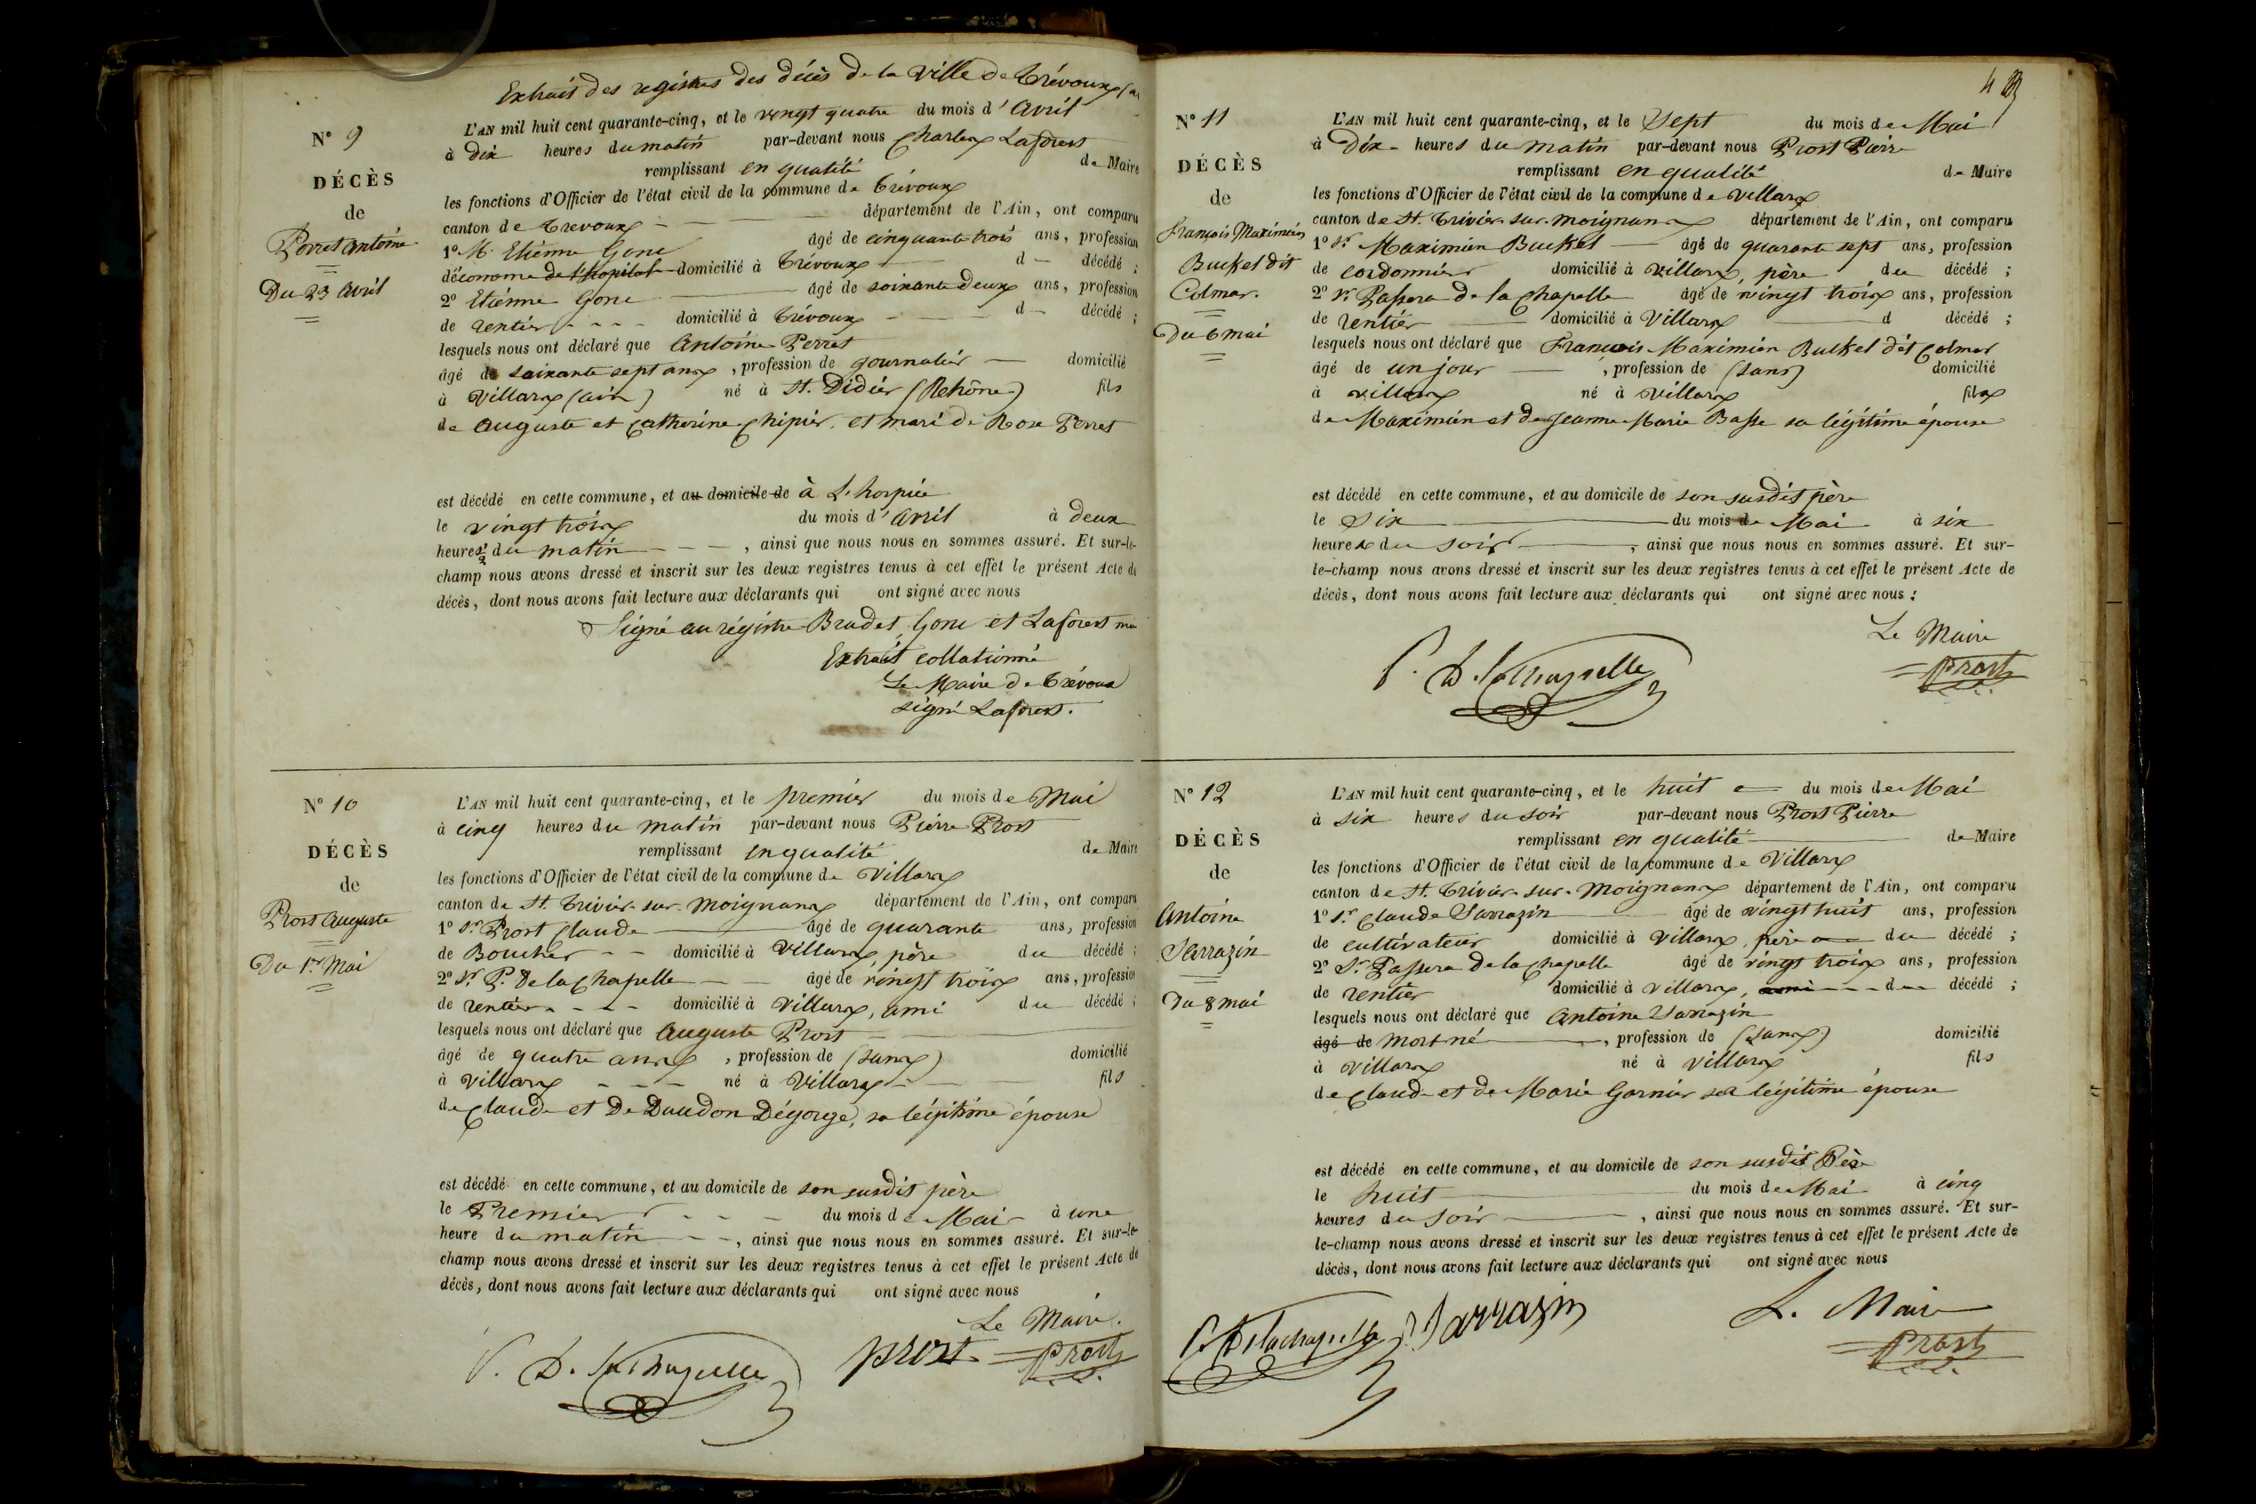 Extrait des registres des décès de la Ville de Trévoux
N° 9
DÉCÈS
de
Perret Antoine
Du 23 Avril
L'AN mil huit cent quarante-cinq, et le vingt quatre du mois d'Avril
à dix heures du matin par-devant nous Charles Laforest
remplissant en qualité de Maire
les fonctions d'Officier de l'état civil de la commune de Trévoux
canton de Trevoux département de l'Ain, ont comparu
1° M. Etienne Gone âgé de cinquante trois ans, profession
d'économe de l'hopital domicilié à Trévoux d décédé ;
2° Etienne Gone âgé de soixante deux ans, profession
de rentier domicilié à Trévoux d décédé ;
lesquels nous ont déclaré que Antoine Perret
âgé de soixante sept ans, profession de journalier domicilié
à Villars (ain) né à St. Didier (Rehône) fils
de Auguste et Catherine Chipier, et mari de Rose Perret
est décédé en cette commune, et au domicile de à L'hospice
le vingt trois du mois d'Avril à deux
heures ½ du matin, ainsi que nous nous en sommes assuré. Et sur-le-
champ nous avons dressé et inscrit sur les deux registres tenus à cet effet le présent Acte de
décès, dont nous avons fait lecture aux déclarants qui ont signé avec nous
Signé au régistre Brudet, Gone et Laforest
Extrait collationné
Le Maire de Trévoux
signé Laforest.
N° 10
DÉCÈS
de
Prost Auguste
Du 1er Mai
L'AN mil huit cent quarante-cinq, et le premier du mois de Mai
à cinq heures du matin par-devant nous Pierre Prost
remplissant en qualité de Maire
les fonctions d'Officier de l'état civil de la commune de Villars
canton de St. Trivier-sur-Moignans département de l'Ain, ont comparu
1° Sr Prost Claude âgé de quarante ans, profession
de Boucher domicilié à Villars, père du décédé ;
2° Sr. P. De la Chapelle âgé de vingt trois ans, profession
de rentier domicilié à Villars, ami du décédé ;
lesquels nous ont déclaré que Auguste Prost
âgé de quatre ans, profession de (sans) domicilié
à Villars né à Villars fils
de Claude et De Daudon Dégorge, sa légitime épouse
est décédé en cette commune, et au domicile de son susdit père
le Premier du mois de Mai à une
heure du matin, ainsi que nous nous en sommes assuré. Et sur-le-
champ nous avons dressé et inscrit sur les deux registres tenus à cet effet le présent Acte de
décès, dont nous avons fait lecture aux déclarants qui ont signé avec nous
Le Maire.
P. D. LaChapelle prost Prost
N° 11
DÉCÈS
de
François Maximien
Buckel dit
Colmar.
Du 6 mai
L'AN mil huit cent quarante-cinq, et le Sept du mois de Mai
à Dix heures du matin par-devant nous Prost Pierre
remplissant en qualité de Maire
les fonctions d'Officier de l'état civil de la commune de Villars
canton de St. Trivier-sur-Moignans département de l'Ain, ont comparu
1° Sr Maximien Buckel âgé de quarante sept ans, profession
de cordonnier domicilié à Villars, père du décédé ;
2° Sr Passera de la Chapelle âgé de vingt trois ans, profession
de rentier domicilié à Villars d décédé ;
lesquels nous ont déclaré que François Maximien Buckel dit Colmar
âgé de un jour, profession de (sans) domicilié
à villars né à Villars fils
de Maximien et de Jeanne Marie Basse sa légitime épouse
est décédé en cette commune, et au domicile de son susdit père
le Six du mois de Mai à six
heures du soir, ainsi que nous nous en sommes assuré. Et sur-
le-champ nous avons dressé et inscrit sur les deux registres tenus à cet effet le présent Acte de
décès, dont nous avons fait lecture aux déclarants qui ont signé avec nous :
Le Maire
P. D. LaChapelle Prost
N° 12
DÉCÈS
de
Antoine
Sarrazin
Du 8 mai
L'AN mil huit cent quarante-cinq, et le huit du mois de Mai
à six heures du soir par-devant nous Prost Pierre
remplissant en qualité de Maire
les fonctions d'Officier de l'état civil de la commune de Villars
canton de St. Trivier-sur-Moignans département de l'Ain, ont comparu
1° Sr. Claude Sarrazin âgé de vingt huit ans, profession
de cultivateur domicilié à Villars, père du décédé ;
2° Sr. Passera De la Chapelle âgé de vingt trois ans, profession
de rentier domicilié à Villars, ami du décédé ;
lesquels nous ont déclaré que Antoine Sarrazin
âgé de mort né, profession de (sans) domicilié
à Villars né à Villars fils
de Claude et de Marie Garnier sa légitime épouse
est décédé en cette commune, et au domicile de son susdit Père
le huit du mois de Mai à cinq
heures du soir, ainsi que nous nous en sommes assuré. Et sur-
le-champ nous avons dressé et inscrit sur les deux registres tenus à cet effet le présent Acte de
décès, dont nous avons fait lecture aux déclarants qui ont signé avec nous
Le Maire
P. Delachapelle Sarrazin Prost